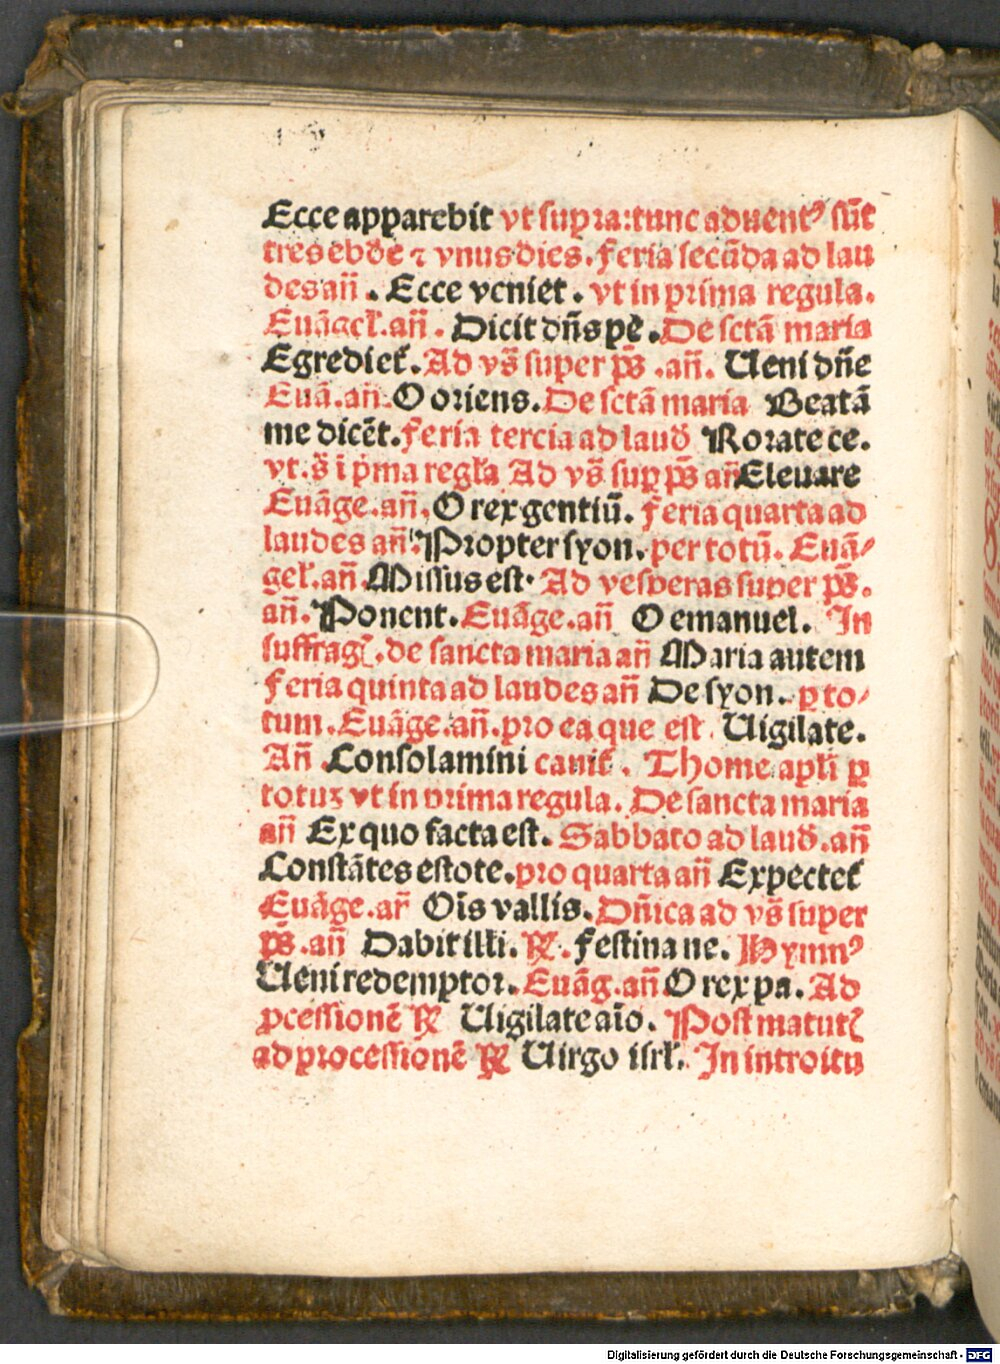 Ecce apparebit vt supra: tunc aduentꝰ sūt
tres ebde ⁊ vnus dies. Feria secūda ad lau
des an̄. Ecce veniet. vt in prima regula.
Euāgel̄. an̄. Dicit dn̄s pē. De sctā maria
Egrediet̄. Ad vs̄ super ps̄. an̄. Ueni dn̄e
Euā. an̄. O oriens. De sctā maria Beatā
me dicēt. Feria tercia ad laud̄ Rorate ce.
vt. s̄ ī pͥma regl̄a Ad vs̄ suꝑ ps̄ an̄ Eleuare
Euāge. an̄. O rex gentiū. Feria quarta ad
laudes an̄. Propter syon. per totū. Euā⸗
gel̄. an̄. Missus est. Ad vesperas super ps̄.
an̄. Ponent. Euāge. an̄ O emanuel. In
suffrag. de sancta maria an̄ Maria autem
Feria quinta ad laudes an̄ De syon. ꝑ to⸗
tum. Euāge. an̄. pro ea que est. Uigilate.
An̄ Consolamini canit̄. Thome apl̄i ꝑ
totuꝫ vt in prima regula. De sancta maria
an̄ Ex quo facta est. Sabbato ad laud̄. an̄
Constātes estote. pro quarta an̄ Expectet̄
Euāge. an̄ Oīs vallis. Dn̄ica ad vs̄ super
ps̄. an̄ Dabit illi. ℟. Festina ne. Hymnꝰ
Ueni redemptor. Euāg. an̄ O rex pa. Ad
ꝓcessionē ℟ Uigilate aīo. Post matut
ad processionē ℟ Uirgo isrl̄. In introitu
Digitalisierung gefördert durch die Deutsche Forschungsgemeinschaft - DFG